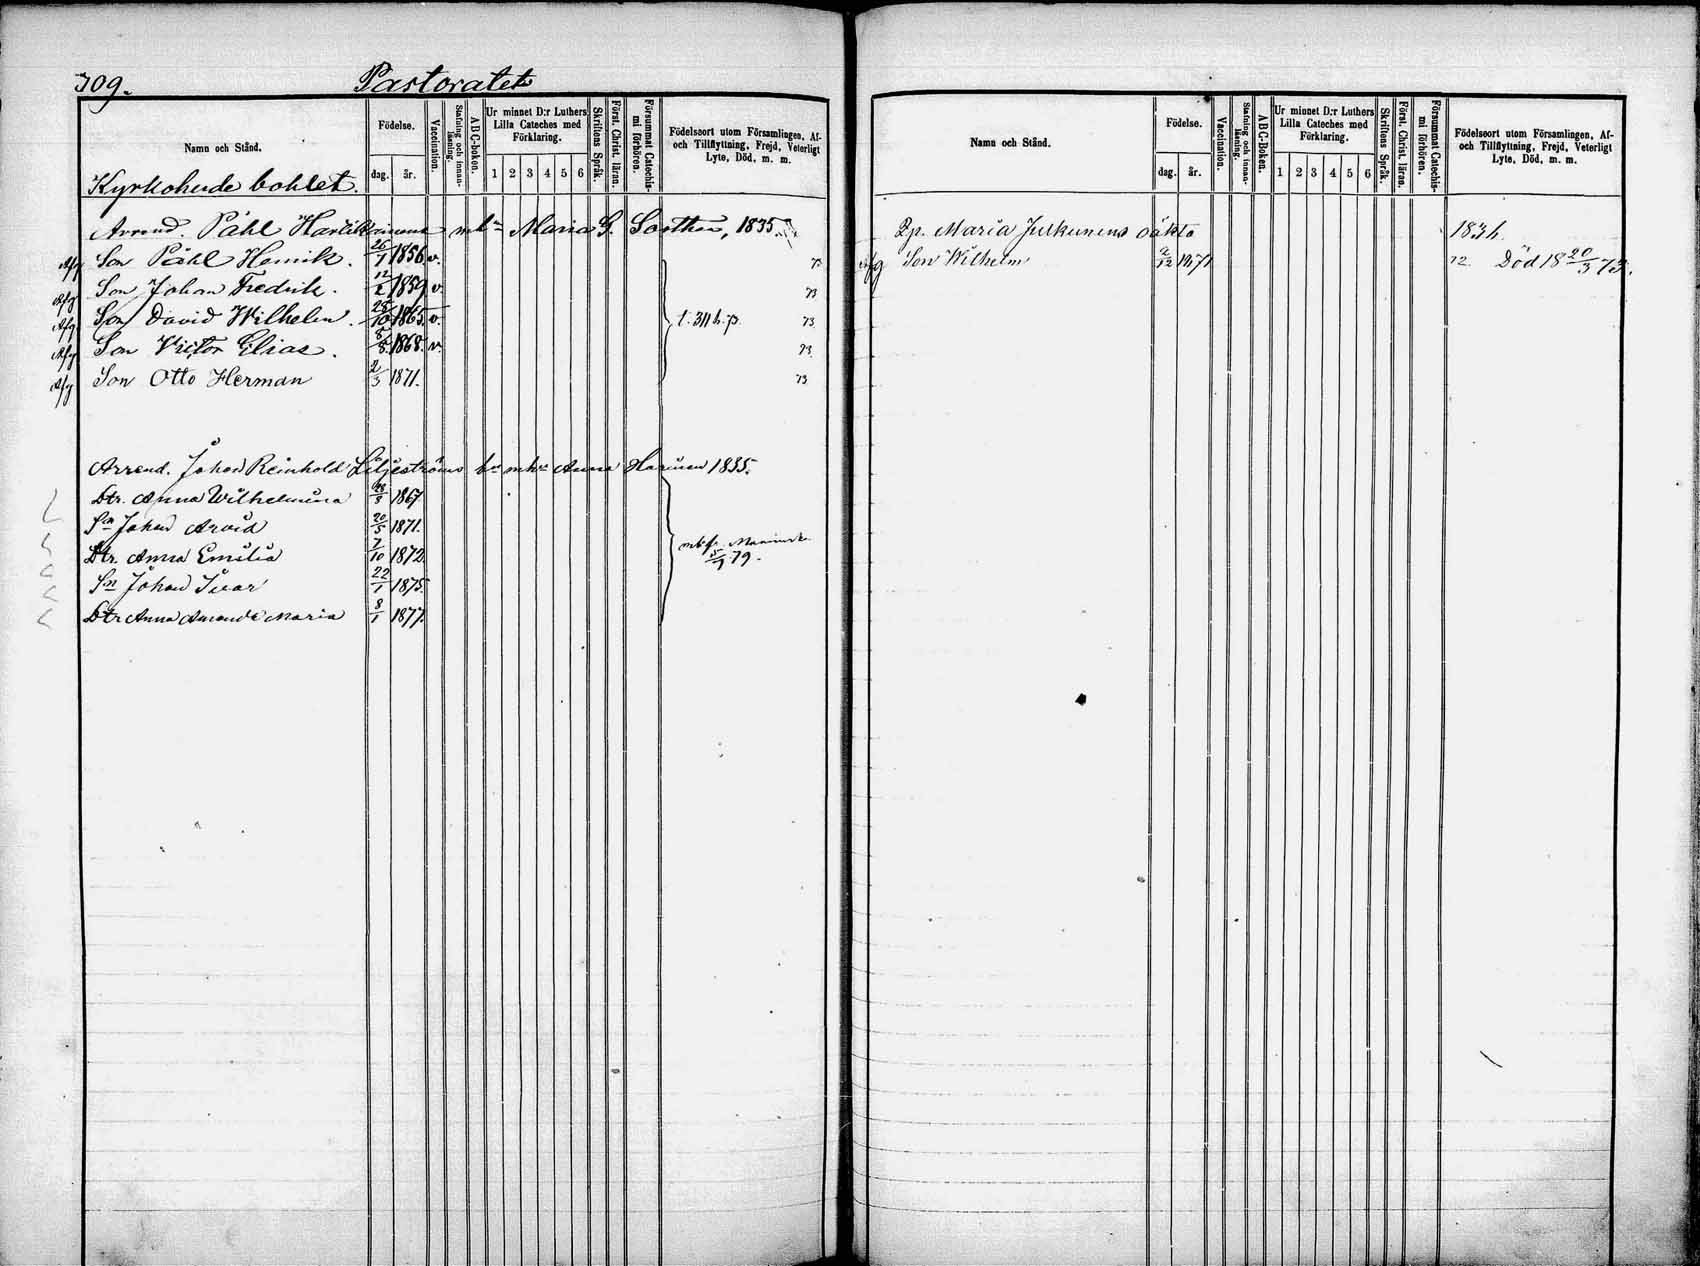 709.
Pastoratet
Namn och Stånd.
Födelse.
dag. år.
Vaccination.
Stafning och innanläsning.
ABC-boken.
Ur minnet D:r Luthers Lilla Cateches med Förklaring.
1 2 3 4 5 6
Skriftens Språk.
Först. Christ. läran.
Försummat Catechismi förhören.
Födelseort utom Församlingen, Af- och Tillflyttning, Frejd, Veterligt Lyte, Död, m. m.
Kyrkoherde bohlet.
Arrend. Påhl Har mhu Maria G. 1835
Afg Son Påhl Henrik. 26/1 1856. v. 73
Afg Son Johan Fredrik. 12/2 1859 v. 73
Afg. Son David Wilhelm. 28/10 1865. v. t. 311 h. p. 73
Afg Son Victor Elias. 8/8 1868. v. 73.
Afg Son Otto Herman 2/3 1871. 73
Arrend. Johan Reinhold Liljeströms Anna 1835.
Dtr. Anna Wilhelmina 1867
Sn Johan Arvid 20/5 1871.
Dtr. Anna Emilia 7/10 1872.
79.
Sn Johan Ivar 22/1 1875.
Dtr Anna Amanda Maria 8/1 1877.
Namn och Stånd.
Födelse.
dag. år.
Vaccination.
Stafning och innanläsning.
ABC-Boken.
Ur minnet D:r Luthers Lilla Cateches med Förklaring.
1 2 3 4 5 6
Skriftens Språk.
Först. Christ. läran.
Försummat Catechismi förhören.
Födelseort utom Församlingen, Af- och Tillflyttning, Frejd, Veterligt Lyte, Död, m. m.
Pp. Maria Julkunens oäkta 183h.
Son Wilhelm 2/12 1871 72. Död 18 20/3 73.